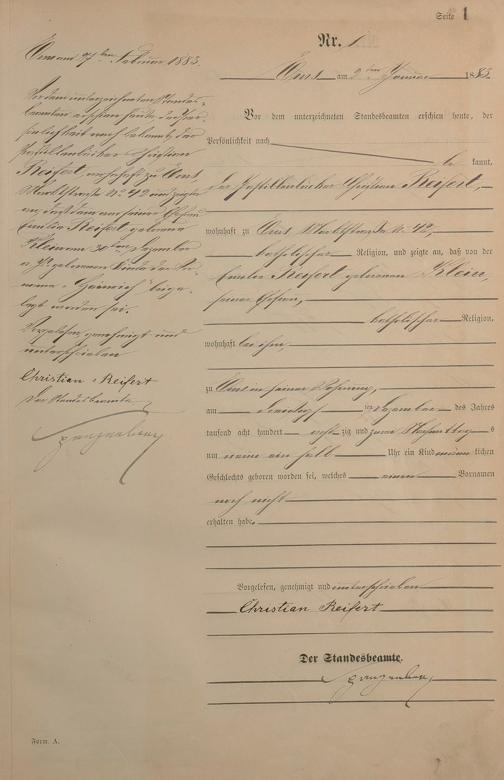 Seite 1
Nr. 1
Ems am 2ten Januar 1883.
Vor dem unterzeichneten Standesbeamten erschien heute, der
Persönlichkeit nach
be kannt,
der Pastillenbäcker Christian Reifert,
wohnhaft zu Ems Marktstraße No 42,
katholischer Religion, und zeigte an, daß von der
Emilie Reifert geborenen Klein,
seiner Ehefrau,
katholischer Religion,
wohnhaft bei ihm
zu Ems in seiner Wohnung,
am Dezember des Jahres
tausend acht hundert acht zig und zwei Nachmittags
um neun ein halb Uhr ein Kind männ lichen
Geschlechts geboren worden sei, welches einen Vornamen
noch nicht
erhalten habe.
Vorgelesen, genehmigt und unterschrieben
Christian Reifert
Der Standesbeamte.
Ems am 7ten Februar 1883.
Vor dem unterzeichneten Standes-
beamten erschien heute, der Per-
sönlichkeit nach bekannt, der
Pastillenbäcker Christian
Reifert, wohnhaft zu Ems
Marktstraße No 42 und zeigte
an, daß dem von seiner Ehefrau
Emilie Reifert geborene
Klein am 30ten Dezember
geborenen Kinde der Vor-
name "Heinrich" beige-
legt worden sei.
Vorgelesen, genehmigt und
unterschrieben
Christian Reifert
Der Standesbeamte
Form. A.